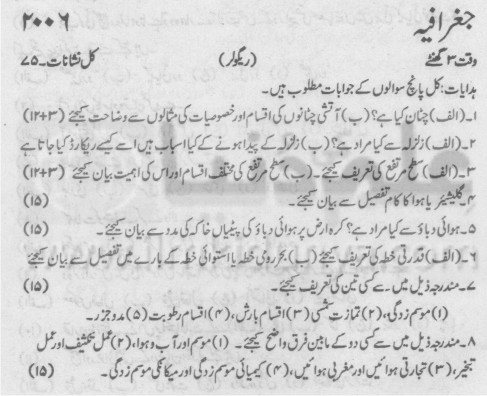 جغرافیہ ۲۰۰۶
وقت ۳ گھنٹے (ریگولر) کل نشانات۔ ۷۵
ہدایات: کل پانچ سوالوں کے جوابات مطلوب ہیں۔
۱۔ (الف) چٹان کیا ہے؟ (ب) آتشی چٹانوں کی اقسام اور خصوصیات کی مثالوں سے وضاحت کیجئے (۳+۱۲)
۲۔ (الف) زلزلہ سے کیا مراد ہے؟ (ب) زلزلہ کے پیدا ہونے کے کیا اسباب ہیں اسے کیسے ریکارڈ کیا جاتا ہے
۳۔ (الف) سطح مرتفع کی تعریف کیجئے۔ (ب) سطح مرتفع کی مختلف اقسام اور اس کی اہمیت بیان کیجئے (۳+۱۲)
۴۔ گلیشیئر یا ہوا کا کام تفصیل سے بیان کیجئے۔ (۱۵)
۵۔ ہوائی دباؤ سے کیا مراد ہے؟ کرہ ارض پر ہوائی دباؤ کی پیٹیاں خاکہ کی مدد سے بیان کیجئے۔
۶۔ (الف) قدرتی خطہ کی تعریف کیجئے (ب) بحیرہ رومی خطہ یا استوائی خطہ کے بارے میں تفصیل سے بیان کیجئے
۷۔ مندرجہ ذیل میں سے کسی تین کی تعریف کیجئے۔ (۱۵)
(۱) موسم زدگی، (۲) تمازت شمسی (۳) اقسام بارش، (۴) اقسام رطوبت (۵) مدوجزر۔
۸۔ مندرجہ ذیل میں سے کسی دو کے مابین فرق واضح کیجئے۔ (۱) موسم اور آب و ہوا، (۲) عمل تکثف اور عمل
تبخیر، (۳) تجارتی ہوائیں اور مغربی ہوائیں، (۴) کیمیائی موسم زدگی اور میکانکی موسم زدگی۔ (۱۵)